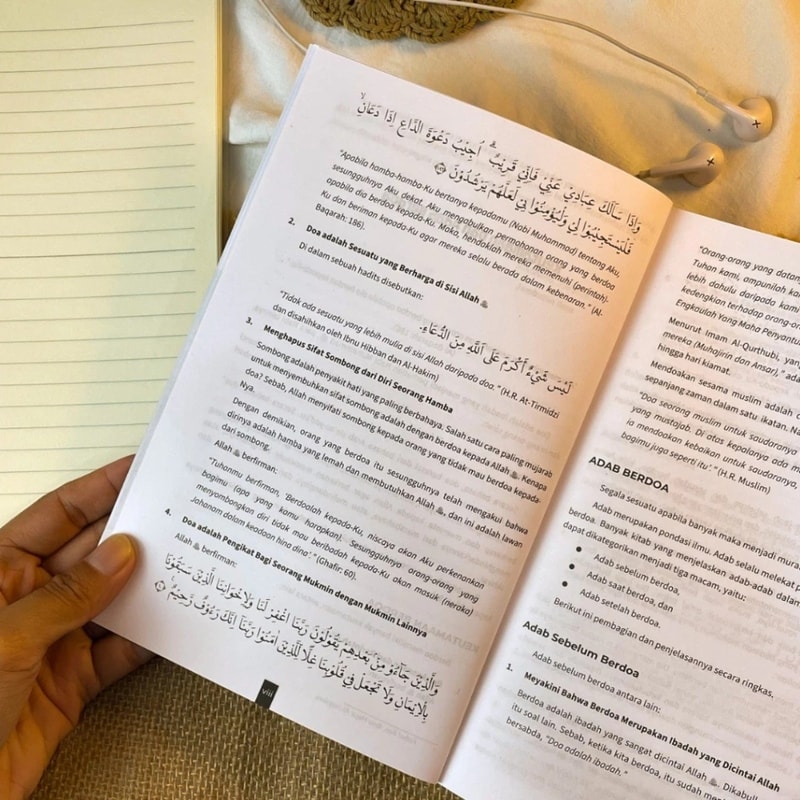 وَاِذَا سَاَلَكَ عِبَادِيْ عَنِّيْ فَاِنِّيْ قَرِيْبٌ ۗ اُجِيْبُ دَعْوَةَ الدَّاعِ اِذَا دَعَانِۙ
فَلْيَسْتَجِيْبُوْا لِيْ وَلْيُؤْمِنُوْا بِيْ لَعَلَّهُمْ يَرْشُدُوْنَ
"Apabila hamba-hamba-Ku bertanya kepadamu (Nabi Muhammad) tentang Aku,
sesungguhnya Aku dekat. Aku mengabulkan permohonan orang yang berdoa
apabila dia berdoa kepada-Ku. Maka, hendaklah mereka memenuhi (perintah)-
Ku dan beriman kepada-Ku agar mereka selalu berada dalam kebenaran." (Al-
Baqarah: 186).
2. Doa adalah Sesuatu yang Berharga di Sisi Allah ﷻ
Di dalam sebuah hadits disebutkan:
لَيْسَ شَيْءٌ أَكْرَمَ عَلَى اللَّهِ مِنَ الدُّعَاءِ.
"Tidak ada sesuatu yang lebih mulia di sisi Allah daripada doa." (H.R. At-Tirmidzi
dan disahihkan oleh Ibnu Hibban dan Al-Hakim)
3. Menghapus Sifat Sombong dari Diri Seorang Hamba
Sombong adalah penyakit hati yang paling berbahaya. Salah satu cara paling mujarab
untuk menyembuhkan sifat sombong adalah dengan berdoa kepada Allah ﷻ. Kenapa
doa? Sebab, Allah menyifati sombong kepada orang yang tidak mau berdoa kepada-
Nya.
Dengan demikian, orang yang berdoa itu sesungguhnya telah mengakui bahwa
dirinya adalah hamba yang lemah dan membutuhkan Allah ﷻ, dan ini adalah lawan
dari sombong.
Allah ﷻ berfirman:
"Tuhanmu berfirman, 'Berdoalah kepada-Ku, niscaya akan Aku perkenankan
bagimu (apa yang kamu harapkan). Sesungguhnya orang-orang yang
menyombongkan diri tidak mau beribadah kepada-Ku akan masuk (neraka)
Jahanam dalam keadaan hina dina'." (Ghafir: 60).
4. Doa adalah Pengikat Bagi Seorang Mukmin dengan Mukmin Lainnya
Allah ﷻ berfirman:
وَالَّذِيْنَ جَاۤءُوْ مِنْۢ بَعْدِهِمْ يَقُوْلُوْنَ رَبَّنَا اغْفِرْ لَنَا وَلِاِخْوَانِنَا الَّذِيْنَ سَبَقُوْنَا
بِالْاِيْمَانِ وَلَا تَجْعَلْ فِيْ قُلُوْبِنَا غِلًّا لِّلَّذِيْنَ اٰمَنُوْا رَبَّنَآ اِنَّكَ رَءُوْفٌ رَّحِيْمٌ
viii
"Orang-orang yang datan
Tuhan kami, ampunilah ka
lebih dahulu daripada kami
kedengkian terhadap orang-or
Engkaulah Yang Maha Penyantu
Menurut Imam Al-Qurthubi, yang
mereka (Muhajirin dan Ansar)," ada
hingga hari kiamat.
Mendoakan sesama muslim adalah c
sepanjang zaman dalam satu ikatan. Na
"Doa seorang muslim untuk saudaranya
yang mustajab. Di atas kepalanya ada m
ia mendoakan kebaikan untuk saudaranya,
bagimu juga seperti itu'." (H.R. Muslim)
ADAB BERDOA
Segala sesuatu apabila banyak maka menjadi mura
Adab merupakan pondasi ilmu. Adab selalu melekat p
berdoa. Banyak kitab yang menjelaskan adab-adab dalam
dapat dikategorikan menjadi tiga macam, yaitu:
• Adab sebelum berdoa,
• Adab saat berdoa, dan
• Adab setelah berdoa.
Berikut ini pembagian dan penjelasannya secara ringkas.
Adab Sebelum Berdoa
Adab sebelum berdoa antara lain:
1. Meyakini Bahwa Berdoa Merupakan Ibadah yang Dicintai Allah
Berdoa adalah ibadah yang sangat dicintai Allah ﷻ. Dikabull
itu soal lain. Sebab, ketika kita berdoa, itu sudah men
bersabda, "Doa adalah ibadah."